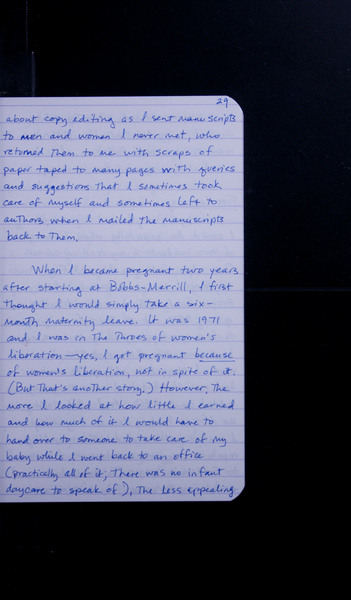 29
about copy editing as I sent manuscripts
to men and women I never met, who
returned them to me with scraps of
paper taped to many pages with queries
and suggestions that I sometimes took
care of myself and sometimes left to
authors when I mailed the manuscripts
back to them.
When I became pregnant two years
after starting at Bobbs-Merrill, I first
thought I would simply take a six-
month maternity leave. It was 1971
and I was in the throes of women's
liberation—yes, I got pregnant because
of women's liberation, not in spite of it.
(But that's another story.) However, the
more I looked at how little I earned
and how much of it I would have to
hand over to someone to take care of my
baby while I went back to an office
(practically all of it; there was no infant
daycare to speak of), the less appealing